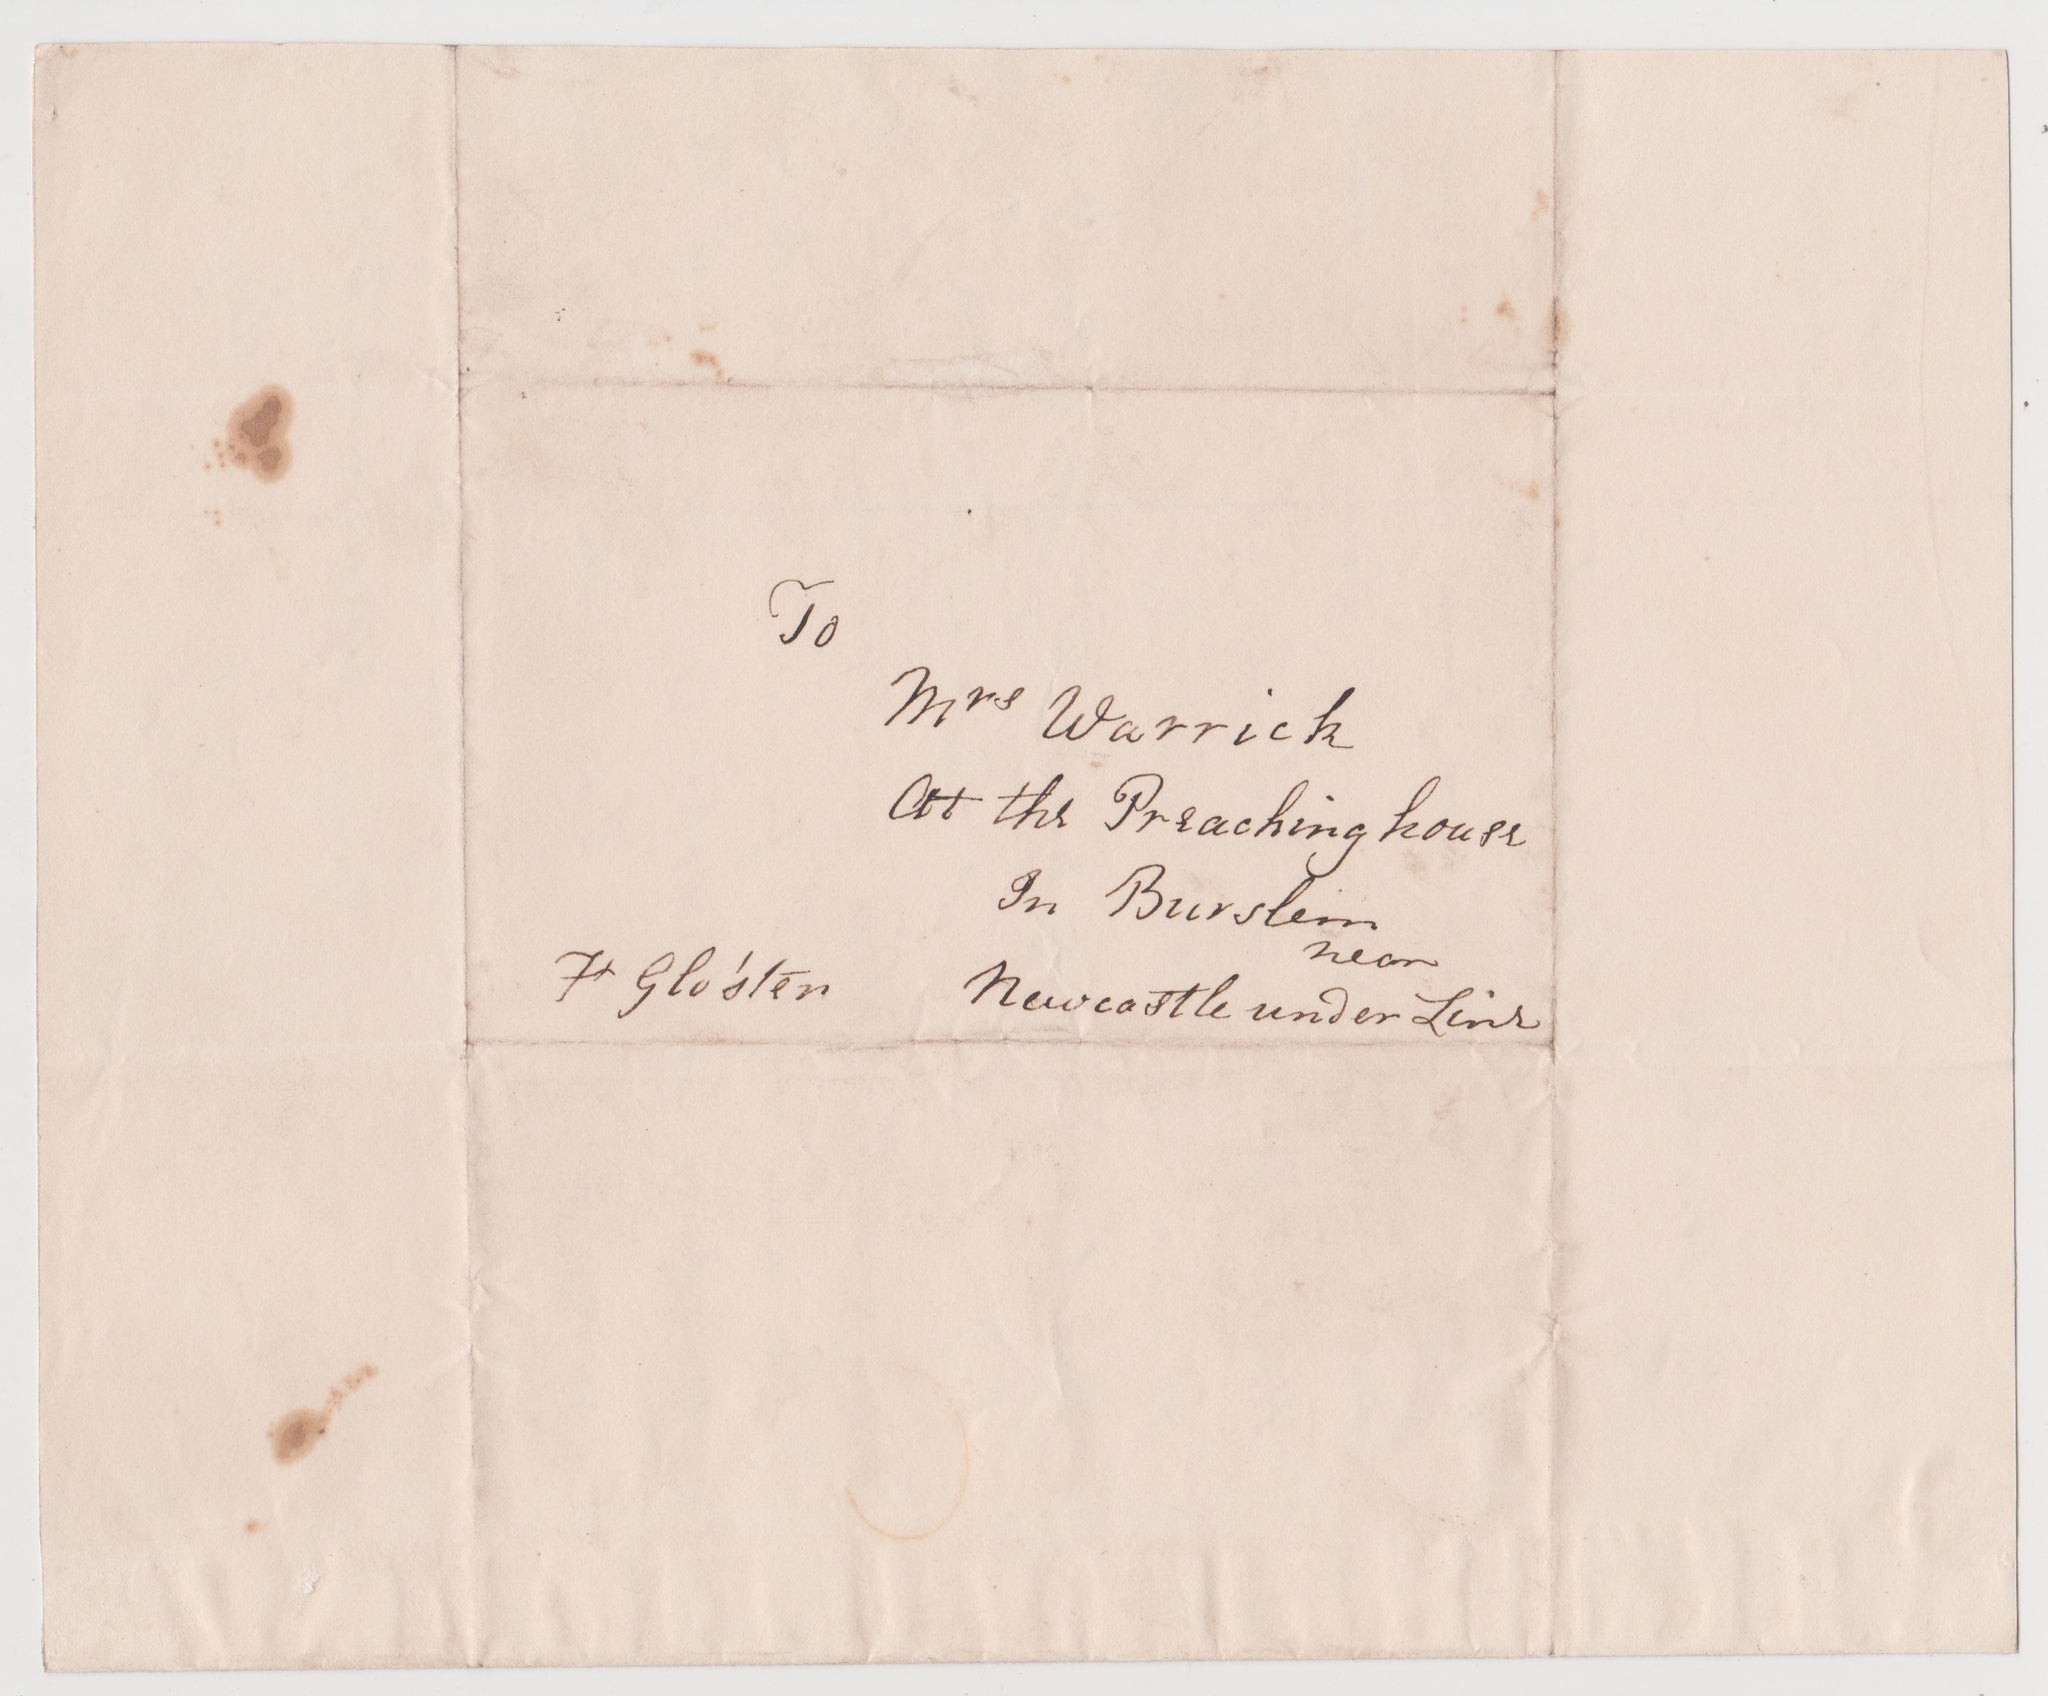 To
Mrs Warrick
At the Preaching house
In Burslem
near
Glo'ster Newcastle under Line